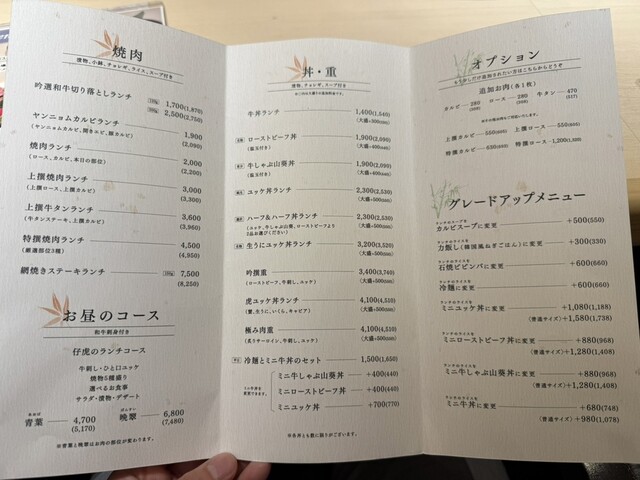 焼肉
漬物、小鉢、チョレギ、ライス、スープ付き
吟選和牛切り落としランチ 1,700(1,870)
2,500(2,750)
ヤンニョムカルビランチ 1,900
(ヤンニョムカルビ、開きカルビ、豚カルビ) (2,090)
焼肉ランチ 2,000
(ロース、カルビ、本日の部位) (2,200)
上撰焼肉ランチ 3,000
(上撰ロース、上撰カルビ) (3,300)
上撰牛タンランチ 3,600
(牛タンステーキ、上撰カルビ) (3,960)
特撰焼肉ランチ 4,500
(厳選部位3種) (4,950)
網焼きステーキランチ 7,500
(8,250)
お昼のコース
和牛刺身付き
仔虎のランチコース
牛刺し・ひと口ユッケ
焼物5種盛り
選べるお食事
サラダ・漬物・デザート
青葉 4,700 晩翠 6,800
(5,170) (7,480)
※青葉と晩翠はお肉の部位が変わります。
丼・重
漬物、チョレギ、スープ付き
牛丼ランチ 1,400(1,540)
(大盛+300yen)
ローストビーフ丼 1,900(2,090)
(温玉付き) (大盛+400yen)
牛しゃぶ山葵丼 1,900(2,090)
(大盛+400yen)
ユッケ丼ランチ 2,300(2,530)
(大盛+500yen)
ハーフ&ハーフ丼ランチ 2,300(2,530)
(ユッケ、牛しゃぶ山葵、ローストビーフより (大盛+500yen)
2品お選びください)
生うにユッケ丼ランチ 3,200(3,520)
(大盛+500yen)
吟撰重 3,400(3,740)
(ローストビーフ、牛刺し、ユッケ) (大盛+500yen)
虎ユッケ丼ランチ 4,100(4,510)
(蟹、生うに、いくら、キャビア) (大盛+500yen)
極み肉重 4,100(4,510)
(炙りサーロイン、牛刺し、ユッケ) (大盛+500yen)
冷麺とミニ牛丼のセット 1,500(1,650)
ミニ丼を変更できます。
ミニ牛しゃぶ山葵丼 +400(440)
ミニローストビーフ丼 +400(440)
ミニユッケ丼 +700(770)
※各丼とも数に限りがございます。
オプション
もう少しだけ追加されたい方はこちらからどうぞ
追加お肉(各1枚)
カルビ 280 ロース 280 牛タン 470
(308) (308) (517)
上撰カルビ 550(605) 上撰ロース 550(605)
特撰カルビ 630(693) 特撰ロース 1,200(1,320)
グレードアップメニュー
ランチのスープを
カルビスープに変更 +500(550)
ランチのライスを
力飯し(韓国風ねぎごはん)に変更 +300(330)
ランチのライスを
石焼ビビンバに変更 +600(660)
ランチのライスを
冷麺に変更 +600(660)
ランチのライスを
ミニユッケ丼に変更 +1,080(1,188)
(普通サイズ)+1,580(1,738)
ランチのライスを
ミニローストビーフ丼に変更 +880(968)
(普通サイズ)+1,280(1,408)
ランチのライスを
ミニ牛しゃぶ山葵丼に変更 +880(968)
(普通サイズ)+1,280(1,408)
ランチのライスを
ミニ牛丼に変更 +680(748)
(普通サイズ)+980(1,078)